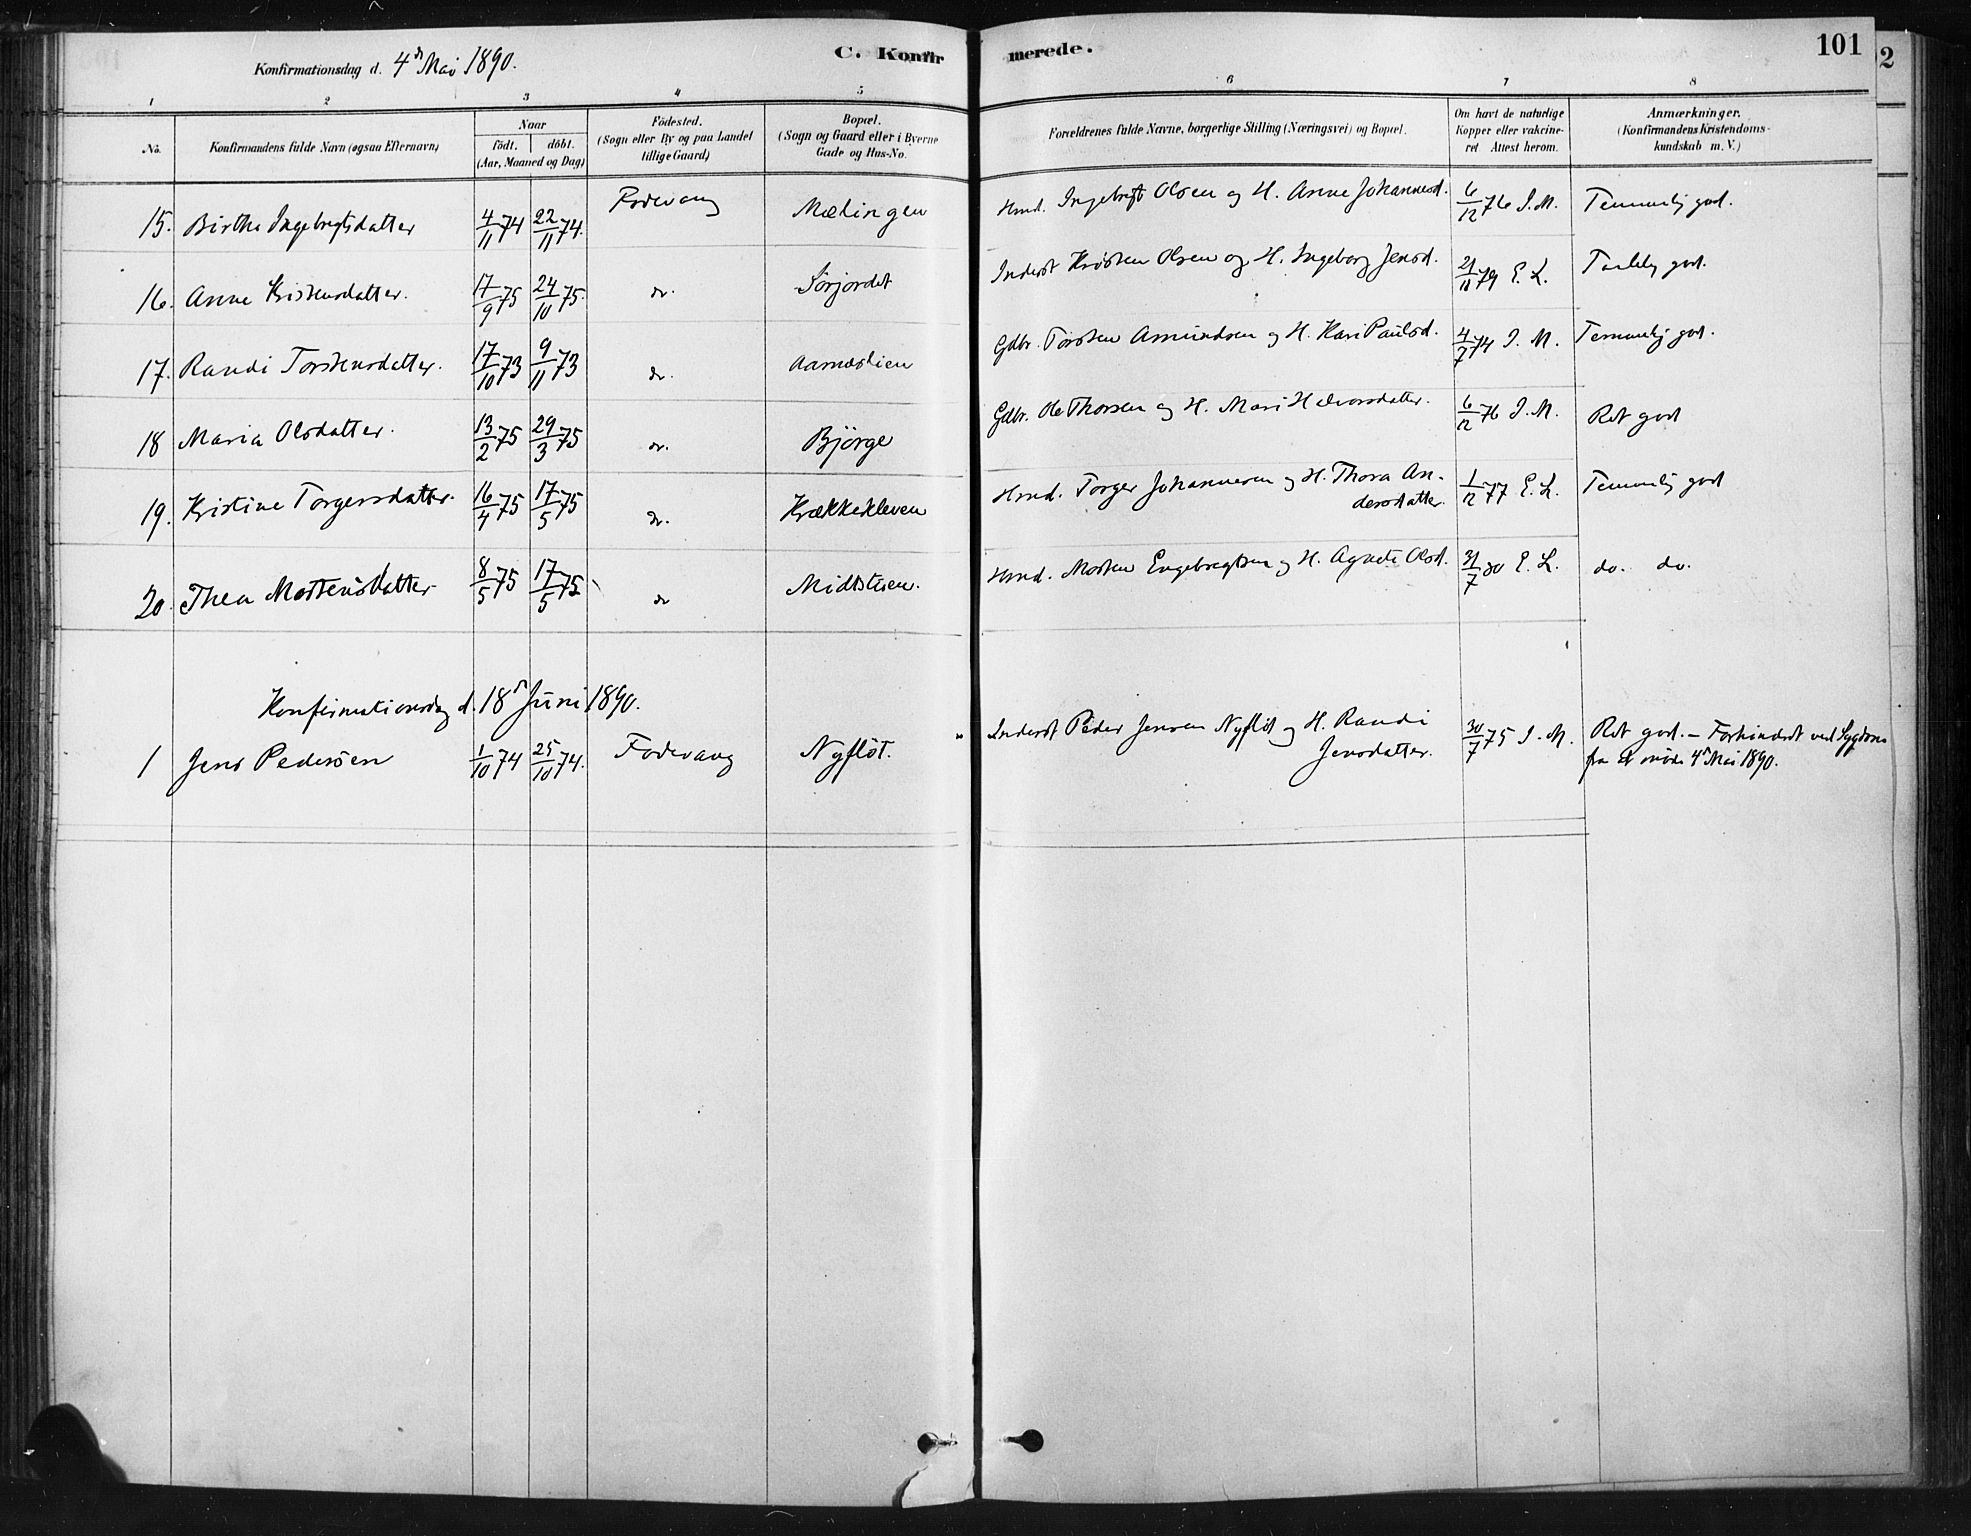 Konfirmationsdag d. 4de Mai 1890.
C. Konfirmerede.
101
2
1 2 3 4 5 6 7 8
No. Konfirmandens fulde Navn (ogsaa Efternavn) Naar födt. döbt. (Aar, Maaned og Dag) Födested. (Sogn eller By og paa Landet tillige Gaard) Bopæl. (Sogn og Gaard eller i Byerne Gade og Hus-No. Forældrenes fulde Navne, borgerlige Stilling (Næringsvei) og Bopæl. Om havt de naturlige Kopper eller vakcineret Attest herom. Anmærkninger. (Konfirmandens Kristendomskundskab m. V.)
15. Birthe Ingebrigtsdatter 4/11 74 22/11 74. Fodvang Mælingen Hmd. Ingebrigt Olsen og H. Anne Johannesd. 6/12 76 I. M. Temmelig god.
16. Anne Kristensdatter. 17/9 75 24/10 75. do. Sörjordet Inderst Kristen Olsen og H. Ingeborg Jensd. 21/11 79 E. L. god.
17. Randi Torstensdatter. 17/10 73 9/11 73 do. Aarnæslien Gdbr. Torsten Amundsen og H. Kari Paulsd. 4/7 74 I. M. Temmelig god.
18 Maria Olsdatter. 13/2 75 29/3 75 do. Björge Gdbr. Ole Thorsen og H. Mari Halvorsdatter. 6/12 76 I. M. Ret god
19. Kristine Torgersdatter. 16/4 75 17/5 75 do. Krækkekleven Hmd. Torger Johannesen og H. Thora Andersdatter. 1/12 77 E. L. Temmelig god
20. Thea Mortensdatter 8/5 75 17/5 75 do Midtstuen. Hmd. Morten Engebregtsen og H. Agnete Olsd. 31/7 80 E. L. do. do.
Konfirmationsdag d. 18de Juni 1890.
1 Jens Pedersen 1/10 74 25/10 74. Fodvang Nyflöt. Inderst Peder Jensen Nyflöt og H. Randi Jensdatter. 30/7 75 I. M. Ret god. – Forhindret ved Sygdom
fra at möde 4de Mai 1890.